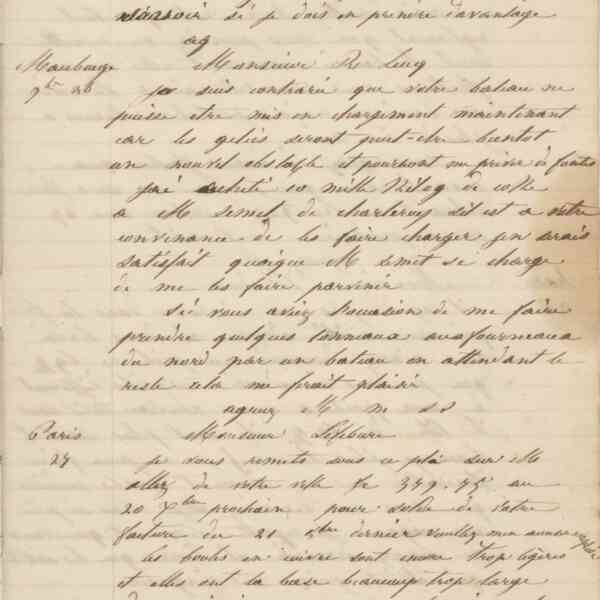 si je dois en prendre davantage
Maubeuge Monsieur R Lucq
9bre 20 je suis contrarié que votre bateau ne
puisse etre mis en chargement maintenant
car les gelées seront peut-etre bientot
un nouvel obstacle et pourront me priver de fontes
j'ai acheté 10 mille Kilog de colle
a M Semet de charleroy sil est a votre
convenance de les faire charger jen serais
satisfait quoique M Semet se charge
de me les faire parvenir
Sé vous aviez l'occasion de me faire
prendre quelques tonneaux aux fourneaux
du nord par un bateau en attendant le
reste cela me ferait plaisir
agreez M m s s
Paris Monsieur Lefebure
27 je vous remets sous ce pli sur M
de votre ville fr 349.75 au
20 Xbre prochain pour solde de votre
facture du 21 dernier veuillez men
les boules en cuivre sont encore trop légères
et elles ont la base beaucoup trop large